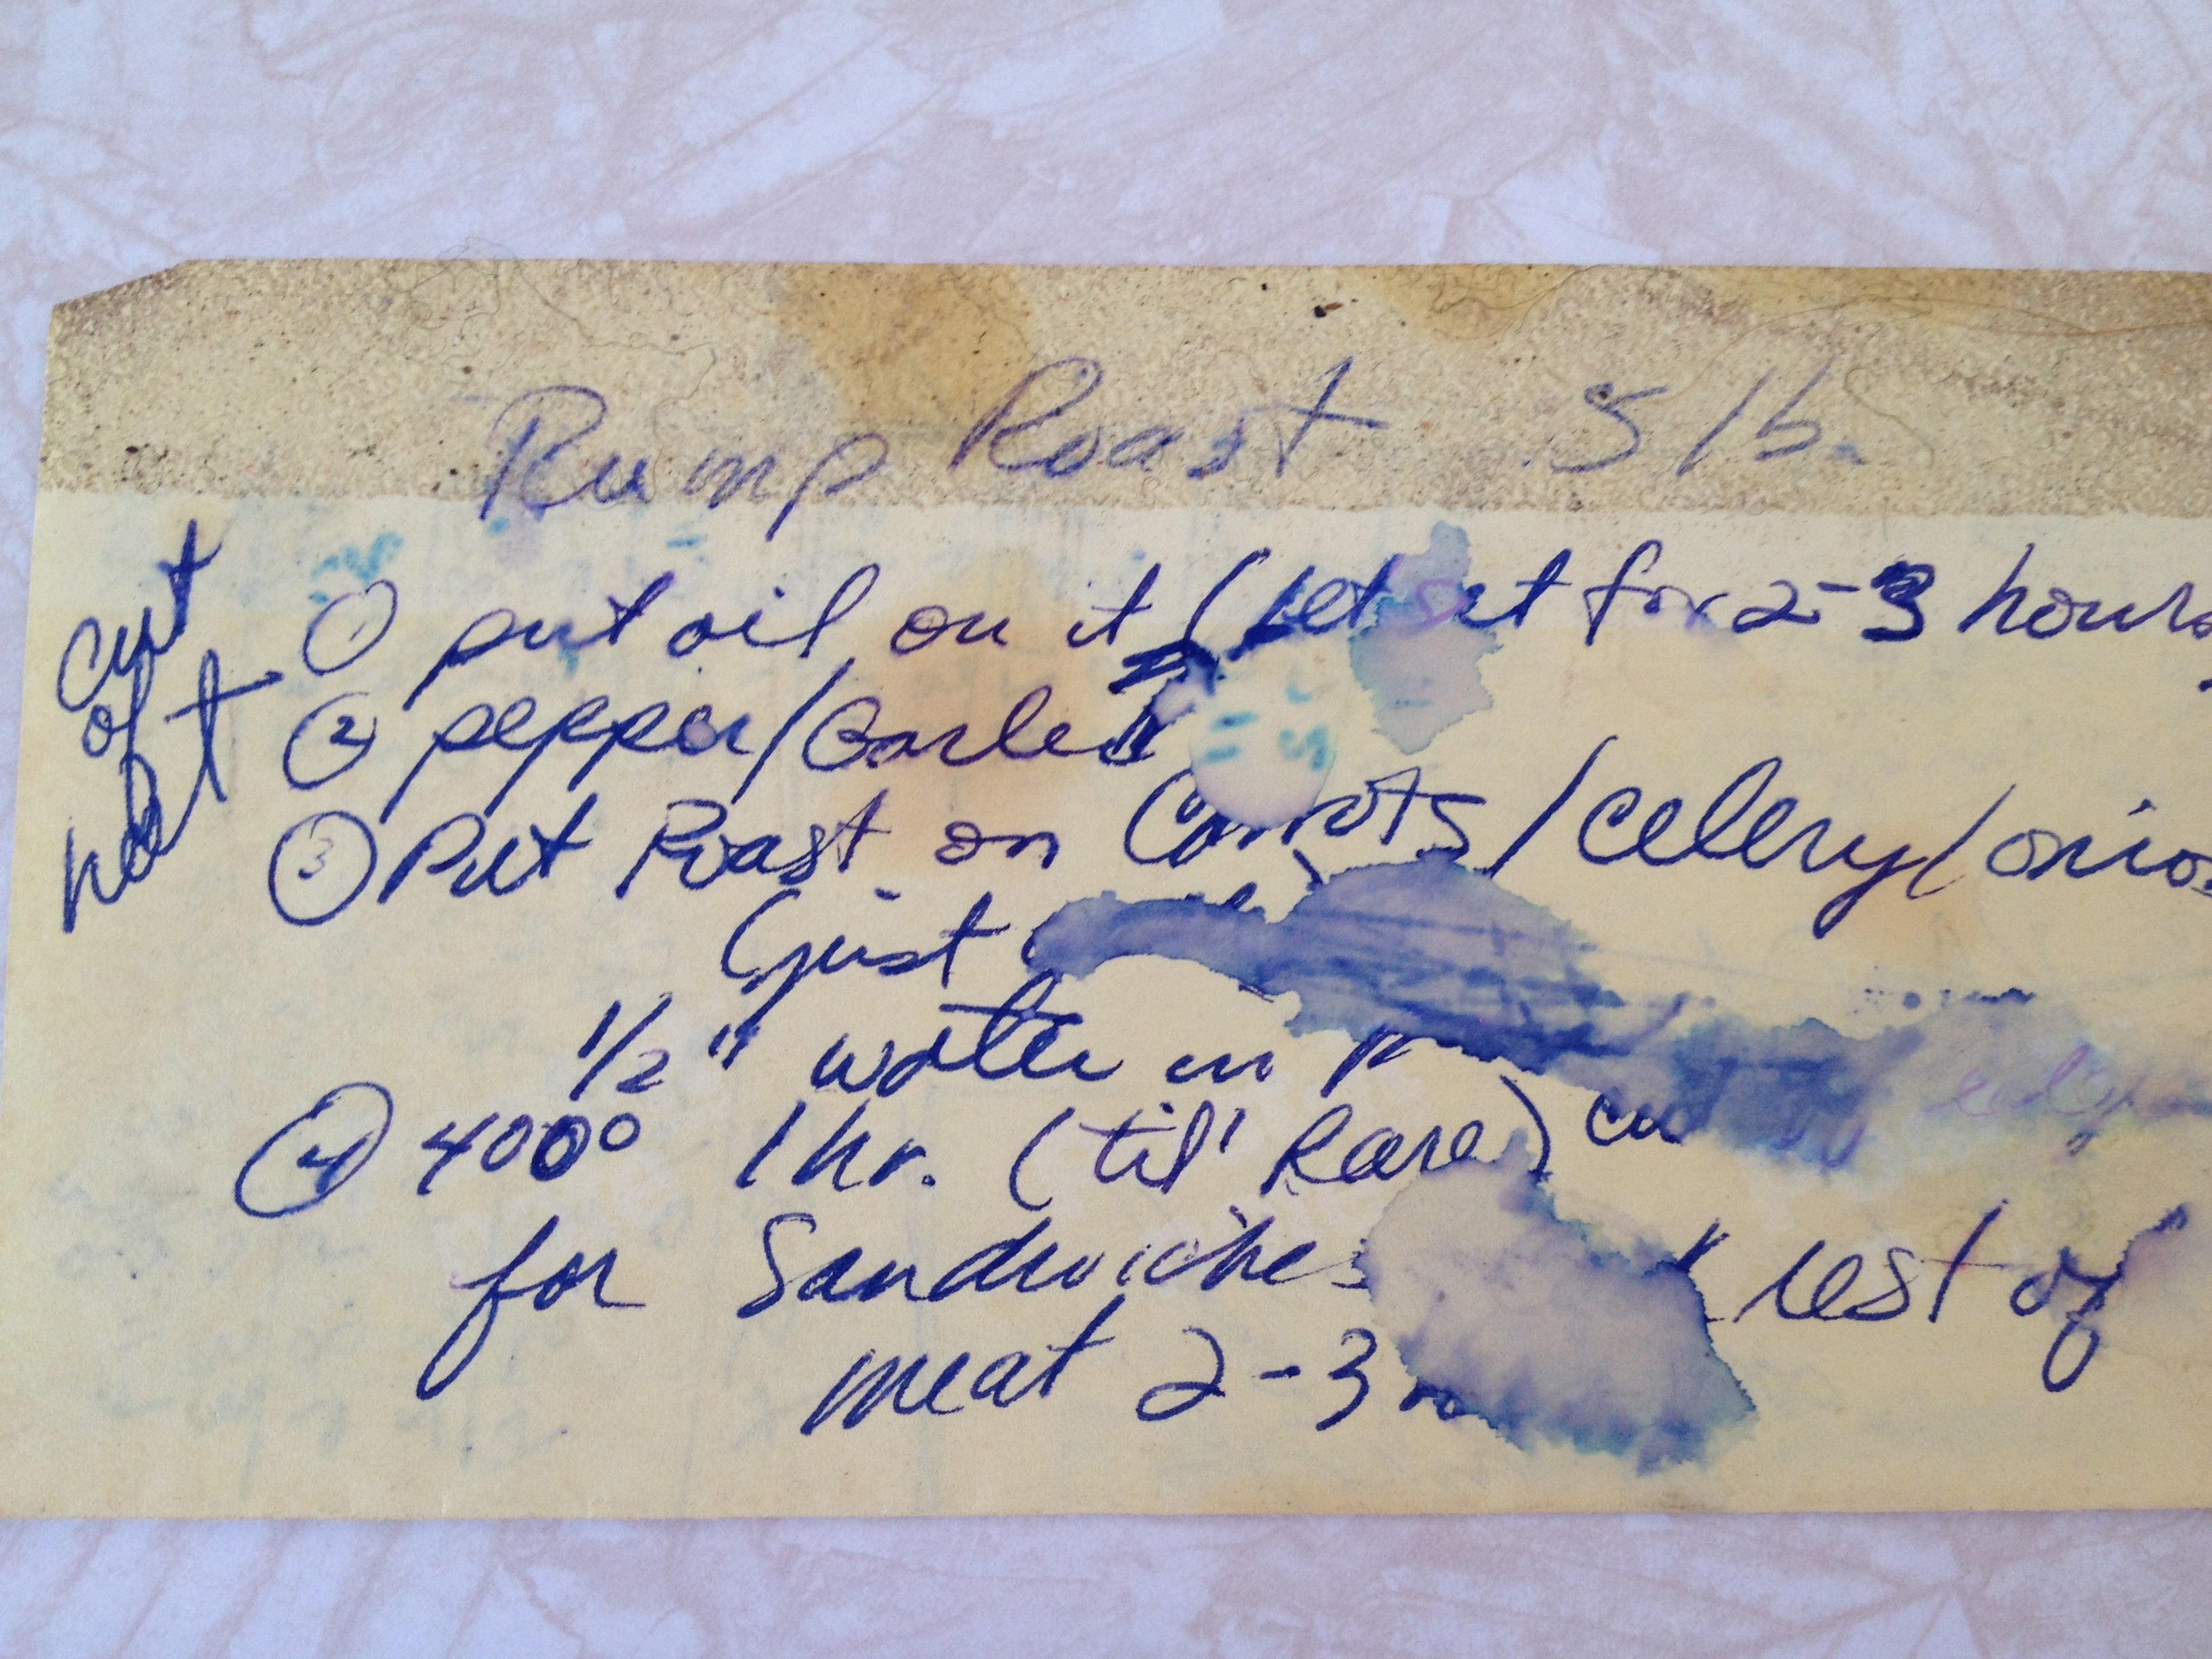 Rump Roast 5 lb.
cut
of
net
① put oil on it (let set for 2-3 hours
② pepper/Garlic
③ Put Roast on Carrots/celery/onio
(just
1/2" water in
④ 400° 1 hr. (til' Rare) cut off edges
for Sandwiches rest of
meat 2-3